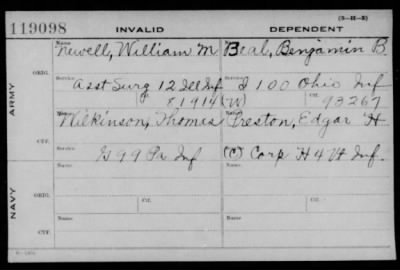 (3-H-2)
119098 INVALID DEPENDENT
Name Newell, William M Beal, Benjamin B.
ORIG.
Service Asst Surg 12 Ill Inf I 100 Ohio Inf
CTF. X1914 (W) Ctf. 93267
ARMY
Wilkinson, Thomas Preston, Edgar H
ORIG.
Service G 99 Pa Inf (C) Corp H 4 Vt Inf.
CTF.
Name Name
NAVY
ORIG.
Service Ctf. Service Ctf.
CTF.
Name Name